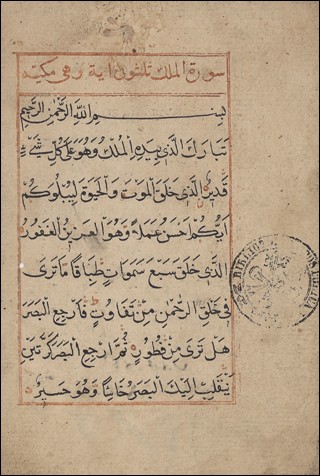 سورة الملك ثلثون اية وهي مكية
بِسْمِ اللَّهِ الرَّحْمٰنِ الرَّحِيمِ
تَبَارَكَ الَّذِي بِيَدِهِ الْمُلْكُ وَهُوَ عَلَى كُلِّ شَيْءٍ
قَدِيرٌ الَّذِي خَلَقَ الْمَوْتَ وَالْحَيٰوةَ لِيَبْلُوَكُمْ
أَيُّكُمْ أَحْسَنُ عَمَلًا وَهُوَ الْعَزِيزُ الْغَفُورُ
الَّذِي خَلَقَ سَبْعَ سَمٰوَاتٍ طِبَاقًا مَا تَرَى
فِي خَلْقِ الرَّحْمٰنِ مِنْ تَفَاوُتٍ فَارْجِعِ الْبَصَرَ
هَلْ تَرَى مِنْ فُطُورٍ ثُمَّ ارْجِعِ الْبَصَرَ كَرَّتَيْنِ
يَنْقَلِبْ إِلَيْكَ الْبَصَرُ خَاسِئًا وَهُوَ حَسِيرٌ